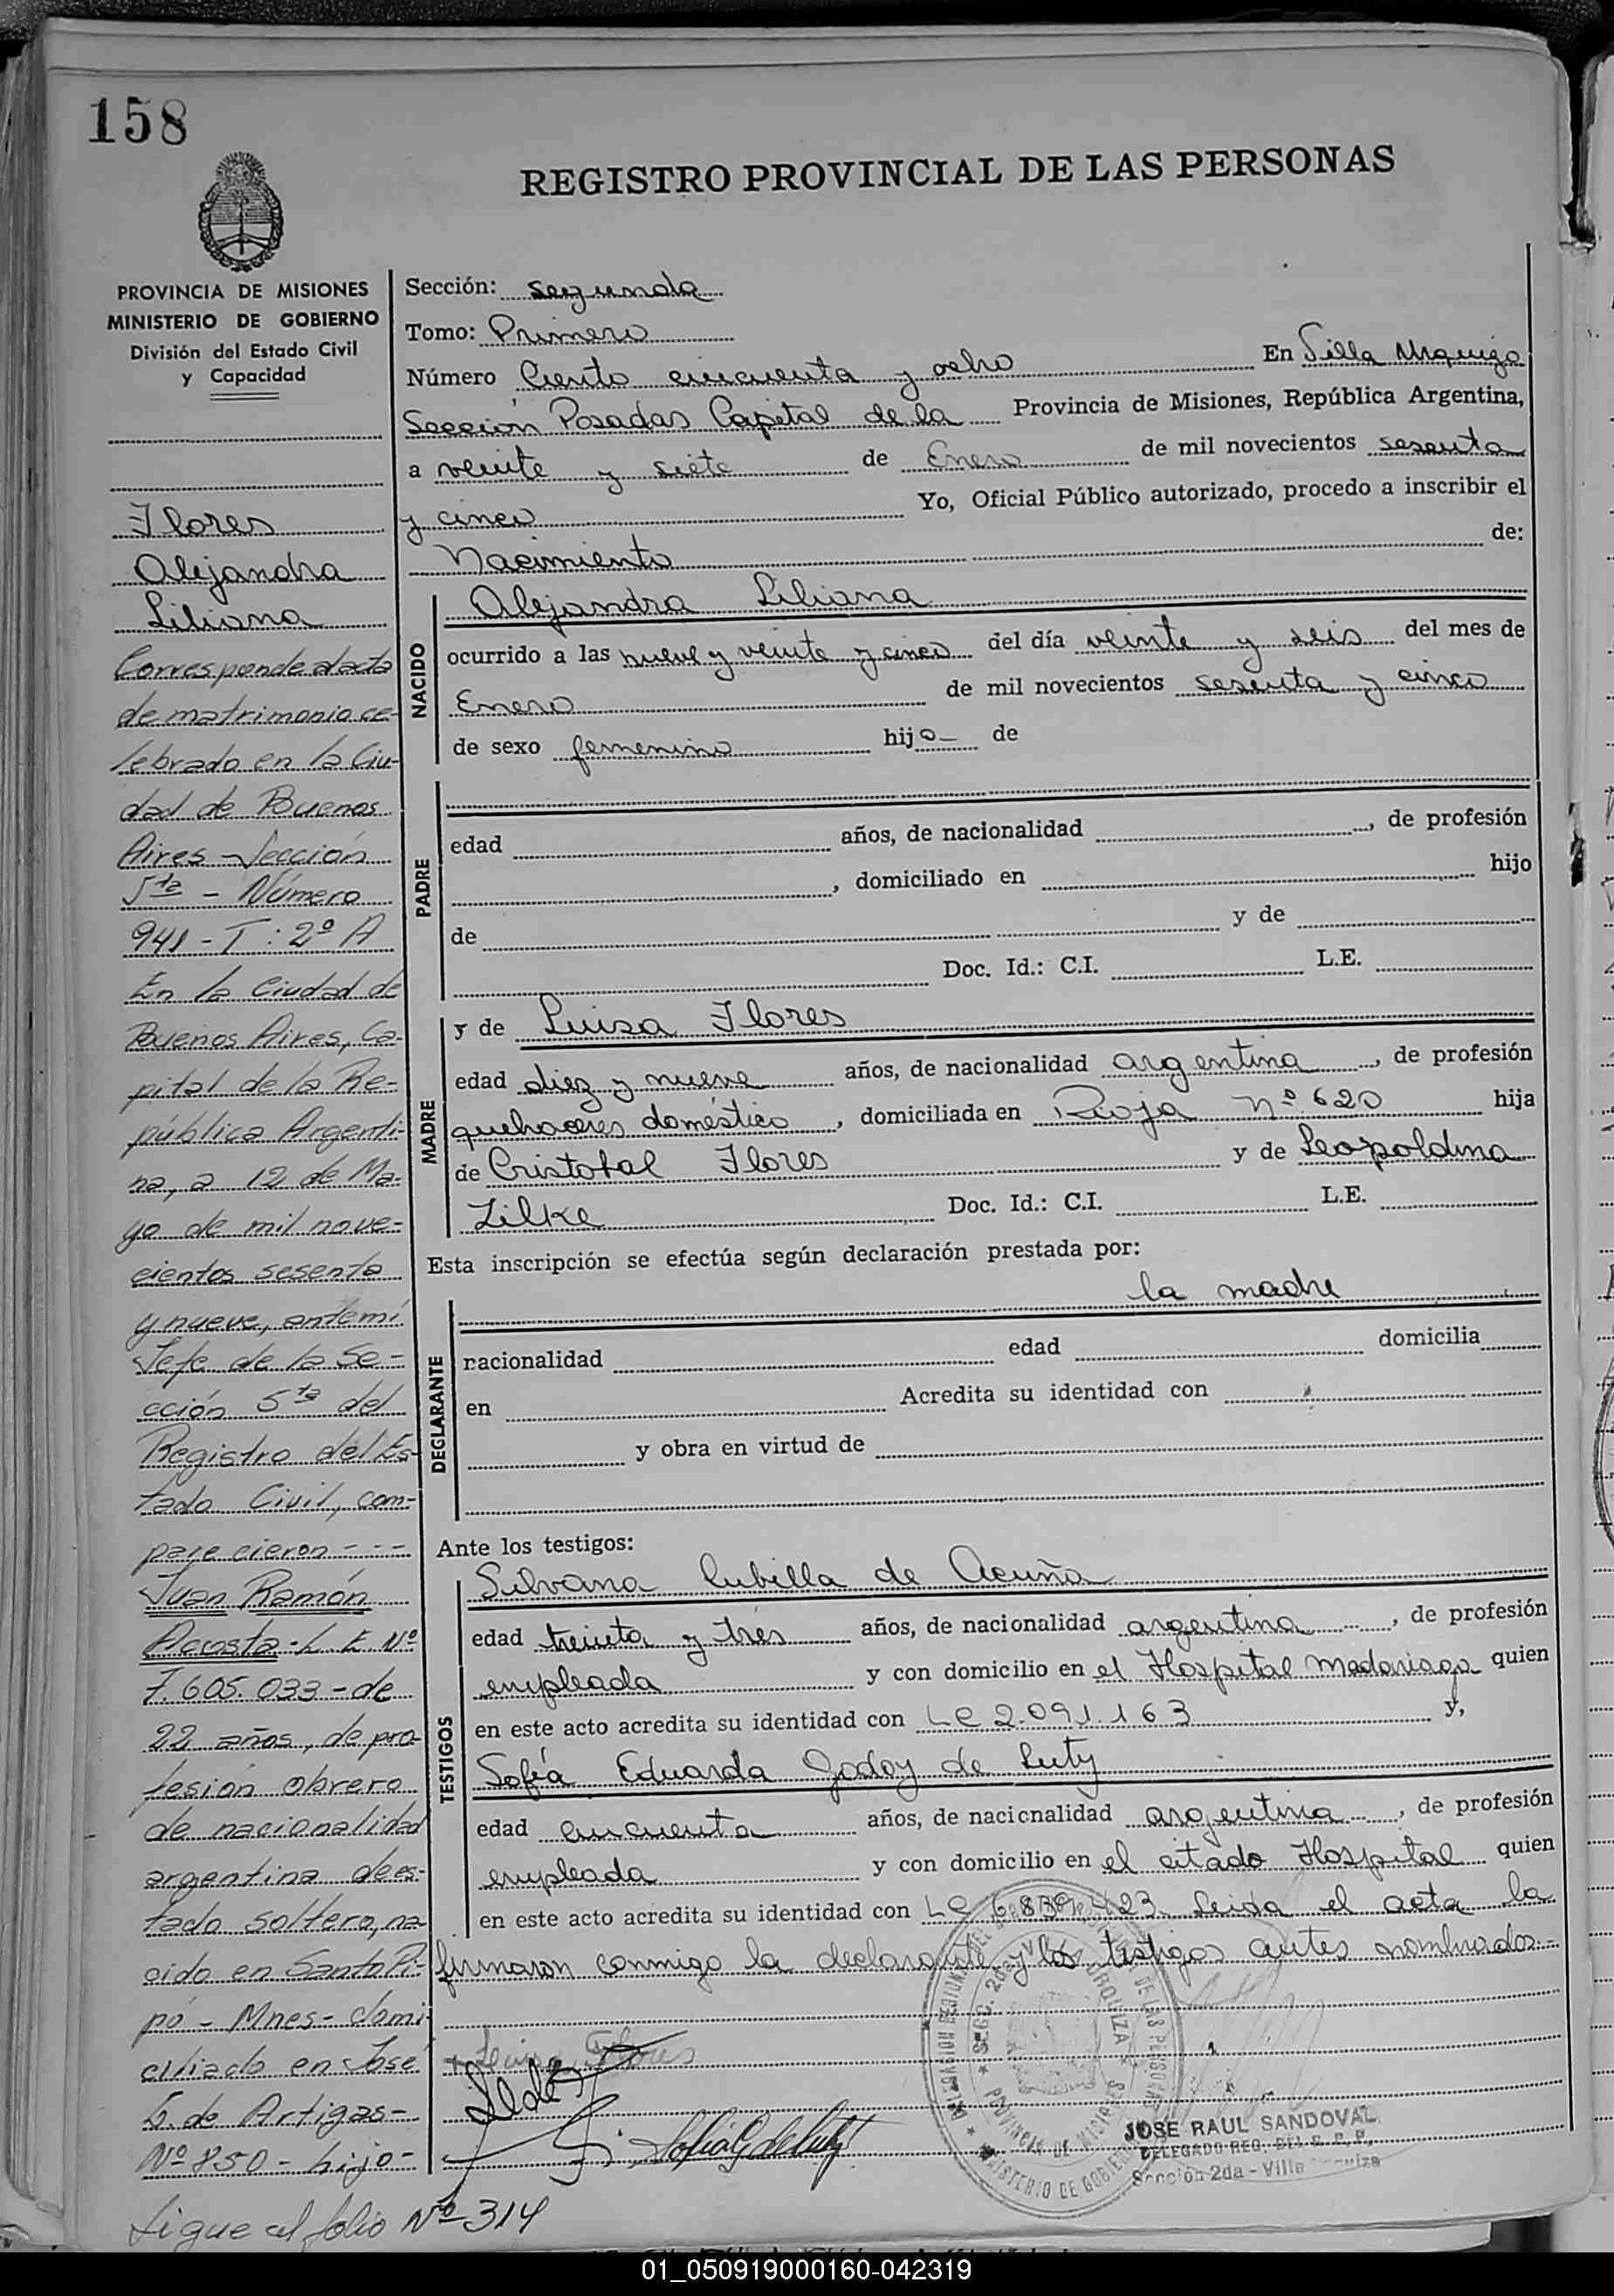 158
REGISTRO PROVINCIAL DE LAS PERSONAS
PROVINCIA DE MISIONES
MINISTERIO DE GOBIERNO
División del Estado Civil
y Capacidad
Flores
Alejandra
Liliana
Corresponde al acta
de matrimonio ce-
lebrado en la Ciu-
dad de Buenos
Aires - Sección
5ta - Número
941 - T: 2º A
En la Ciudad de
Buenos Aires, Ca-
pital de la Re-
pública Argenti-
na, a 12 de Ma-
yo de mil nove-
cientos sesenta
y nueve, ante mí
Jefe de la Se-
cción 5ta del
Registro del Es-
tado Civil, com-
parecieron - - -
Juan Ramón
Acosta - L. E. Nº
7.605.033 - de
22 años, de pro-
fesión obrero
de nacionalidad
argentina de es-
tado soltero, na-
cido en Santo Pi-
pó - Mnes - domi-
ciliado en José
G. de Artigas -
Nº 850 - hijo -
Sigue al folio Nº 314
Sección: segunda
Tomo: Primero
Número Ciento cincuenta y ocho En Villa Urquiza
Sección Posadas Capital de la Provincia de Misiones, República Argentina,
a veinte y siete de Enero de mil novecientos sesenta
y cinco Yo, Oficial Público autorizado, procedo a inscribir el
Nacimiento de:
NACIDO
Alejandra Liliana
ocurrido a las nueve y veinte y cinco del día veinte y seis del mes de
Enero de mil novecientos sesenta y cinco
de sexo femenino hija de
PADRE
edad años, de nacionalidad , de profesión
, domiciliado en hijo
de y de
Doc. Id.: C.I. L.E.
MADRE
y de Luisa Flores
edad diez y nueve años, de nacionalidad argentina , de profesión
quehaceres doméstico , domiciliada en Rioja nº 620 hija
de Cristobal Flores y de Leopoldina
Zilke Doc. Id.: C.I. L.E.
Esta inscripción se efectúa según declaración prestada por:
DEGLARANTE
la madre
racionalidad edad domicilia
en Acredita su identidad con
y obra en virtud de
Ante los testigos:
TESTIGOS
Silvana Cubilla de Acuña
edad treinta y tres años, de nacionalidad argentina , de profesión
empleada y con domicilio en el Hospital Madariaga quien
en este acto acredita su identidad con LC 2.091.163 y,
Sofía Eduarda Godoy de Luty
edad cincuenta años, de nacicnalidad argentina , de profesión
empleada y con domicilio en el citado Hospital quien
en este acto acredita su identidad con LC 6.839.423. Leida el acta la
firmaron conmigo la declarante y los testigos antes nombrados.-
Luisa Flores
Sofia G de Luty
JOSE RAUL SANDOVAL
DELEGADO REG. DEL E. P. P.
Sección 2da - Villa Urquiza
01_050919000160-042319